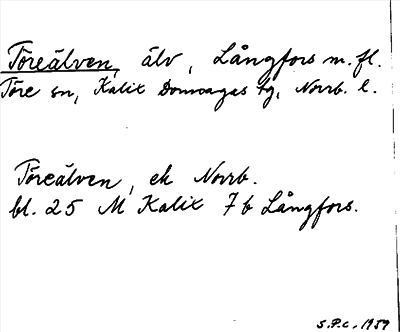 Töreälven, älv, Långfors m. fl.
Töre sn, Kalix Domsagas tg, Norrb. l.
Töreälven, ek Norrb.
bl. 25 M Kalix 7 b Långfors.
S.P.C. 1959